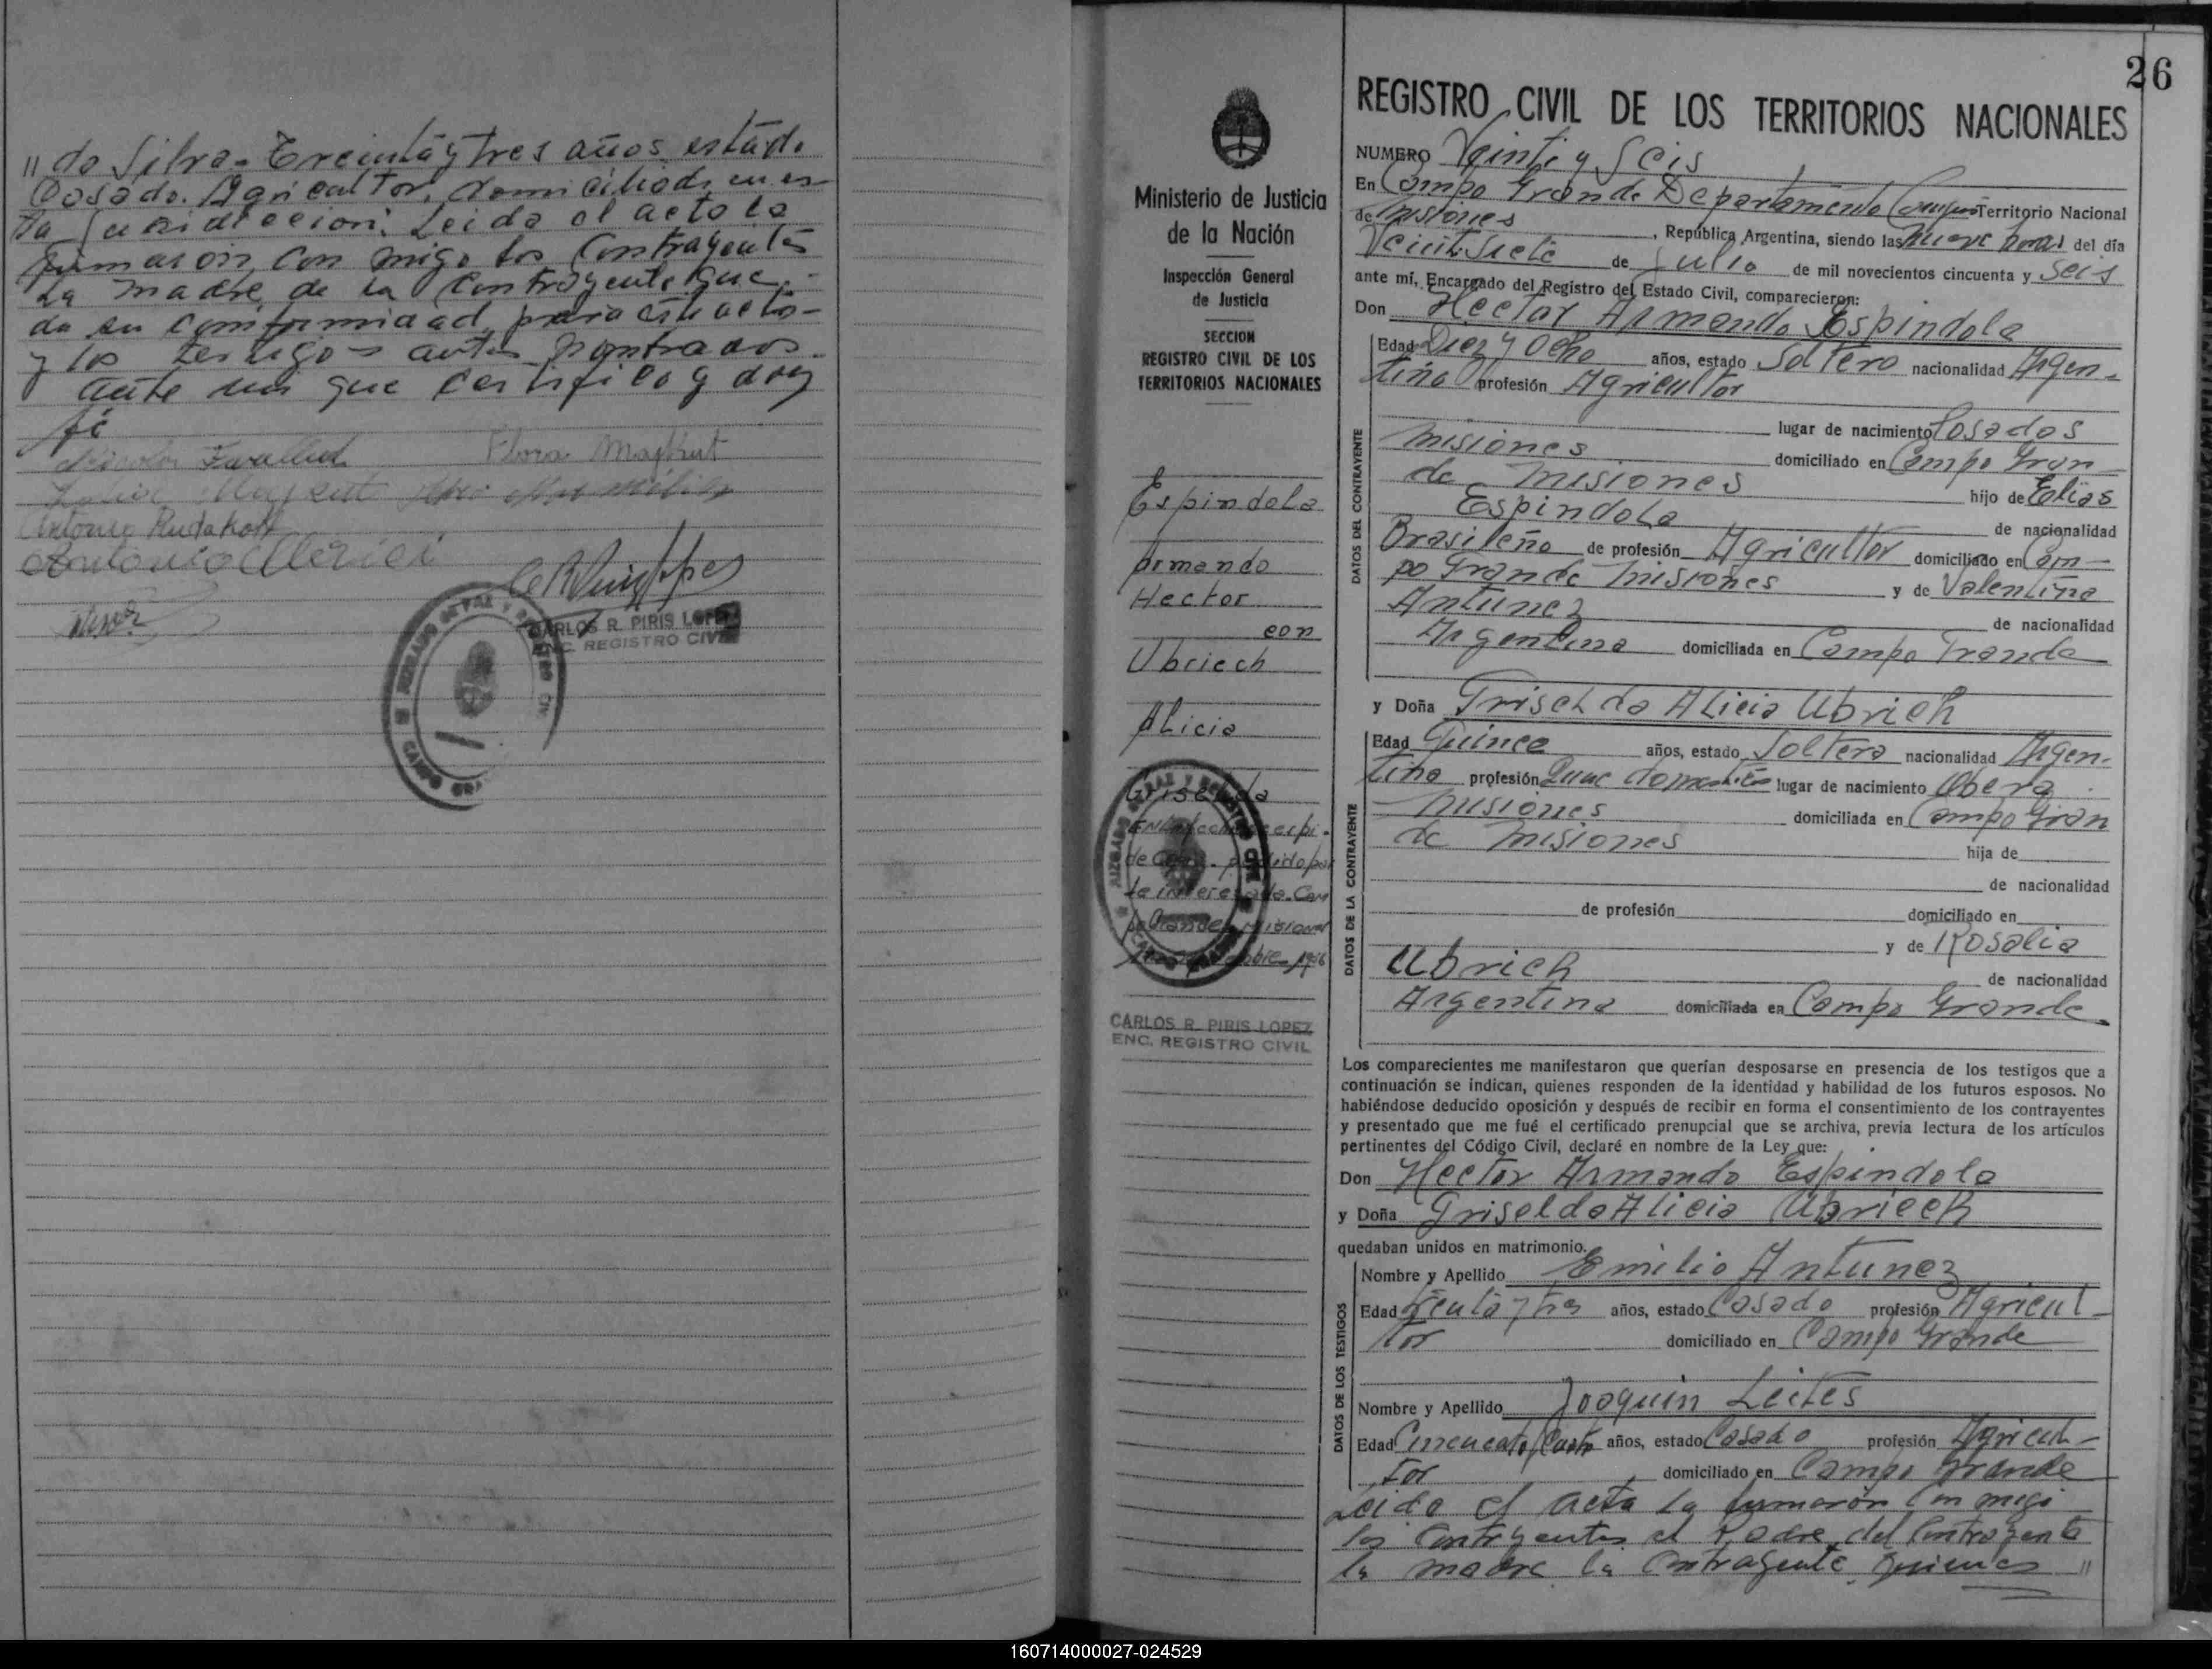 " da Silva - Treinta y tres años estado
Casado. Agricultor, domiciliado en es-
ta Juridiccion: Leida el acto la
firmaron con migo los Contrayentes
La madre de la Contrayente que
da su conformidad para este acto -
y los testigos antes nombrados.
ante mi que certifico y doy
fé
Flora Majkut
Majkut
Antonio Rudakoff
Antonio
CARLOS R. PIRIS LOPEZ
ENC. REGISTRO CIVIL
JUZGADO DE PAZ Y REGISTRO CIVIL
CAMPO GRANDE
26
Ministerio de Justicia
de la Nación
Inspección General
de Justicia
SECCION
REGISTRO CIVIL DE LOS
TERRITORIOS NACIONALES
Espindola
Armando
Hector
con
Ubriech
Alicia
Griselda
En la fecha se expi-
de Cop. pedido por
la interesada. Cam
po Grande, Misiones
1956
JUZGADO DE PAZ Y REGISTRO CIVIL
CARLOS R. PIRIS LOPEZ
ENC. REGISTRO CIVIL
REGISTRO CIVIL DE LOS TERRITORIOS NACIONALES
NUMERO Veinti y Seis
En Campo Grande Departamento Cainguas Territorio Nacional
de Misiones, República Argentina, siendo las nueve horas del día
Veintisiete de Julio de mil novecientos cincuenta y seis
ante mí, Encargado del Registro del Estado Civil, comparecieron:
Don Hector Armando Espindola
DATOS DEL CONTRAYENTE
Edad Diez y Ocho años, estado Soltero nacionalidad Argen-
tina profesión Agricultor
lugar de nacimiento Posadas
Misiones domiciliado en Campo Gran-
de Misiones hijo de Elias
Espindola de nacionalidad
Brasileño de profesión Agricultor domiciliado en Cam-
po Grande Misiones y de Valentina
Antunez de nacionalidad
Argentina domiciliada en Campo Grande
y Doña Griselda Alicia Ubrich
DATOS DE LA CONTRAYENTE
Edad Quince años, estado Soltera nacionalidad Argen-
tina profesión Quac domesticos lugar de nacimiento Obera
Misiones domiciliada en Campo Gran
de Misiones hija de
de nacionalidad
de profesión domiciliado en
y de Rosalia
Ubrich de nacionalidad
Argentina domiciliada en Campo Grande
Los comparecientes me manifestaron que querían desposarse en presencia de los testigos que a
continuación se indican, quienes responden de la identidad y habilidad de los futuros esposos. No
habiéndose deducido oposición y después de recibir en forma el consentimiento de los contrayentes
y presentado que me fué el certificado prenupcial que se archiva, previa lectura de los artículos
pertinentes del Código Civil, declaré en nombre de la Ley que:
Don Hector Armando Espindola
y Doña Griselda Alicia Ubriech
quedaban unidos en matrimonio.
DATOS DE LOS TESTIGOS
Nombre y Apellido Emilio Antunez
Edad treinta y tres años, estado Casado profesión Agricul-
tor domiciliado en Campo Grande
Nombre y Apellido Joaquin Leites
Edad Cincuenta y Cuatro años, estado Casado profesión Agricul-
tor domiciliado en Campo Grande
Leida el acta la firmaron con migo
los Contrayentes el Padre del Contrayente
la madre la Contrayente quienes "
160714000027-024529